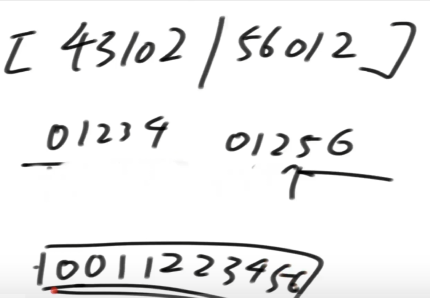 [ 43102 / 56012 ]
01234 01256
10011223456